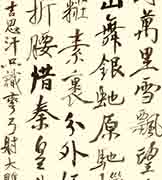 萬里雪飄望
山舞銀蛇原馳
粧素裹分外
折腰惜秦皇
吉思汗只識彎弓射大